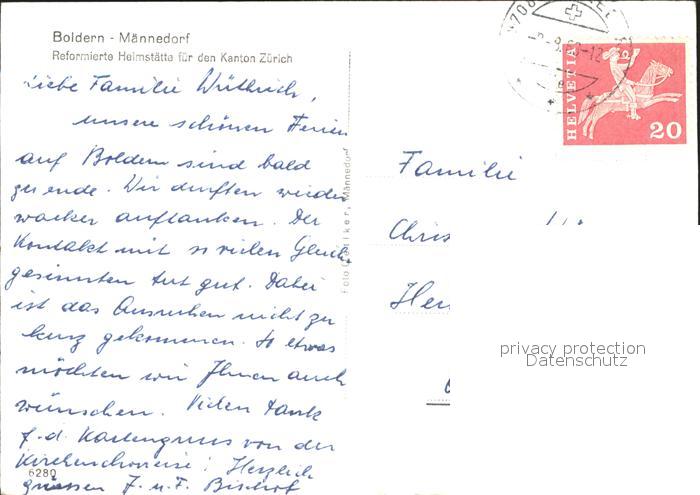 Boldern - Männedorf
Reformierte Heimstätte für den Kanton Zürich
Liebe Familie Wüthrich,
unsere schönen Ferien
auf Boldern sind bald
zu ende. Wir durften wieder
wacker auftanken. Der
Kontakt mit so vielen Gleich
gesinnten tut gut. Dabei
ist das Ausruhen nicht zu
kurz gekommen. So etwas
möchten wir Ihnen auch
wünschen. Vielen Dank
f. d. Kartengruss von der
Herzlich
grüssen F. u. F. Bischof
6280
Männedorf
HELVETIA
20
Familie
Chris
privacy protection
Datenschutz